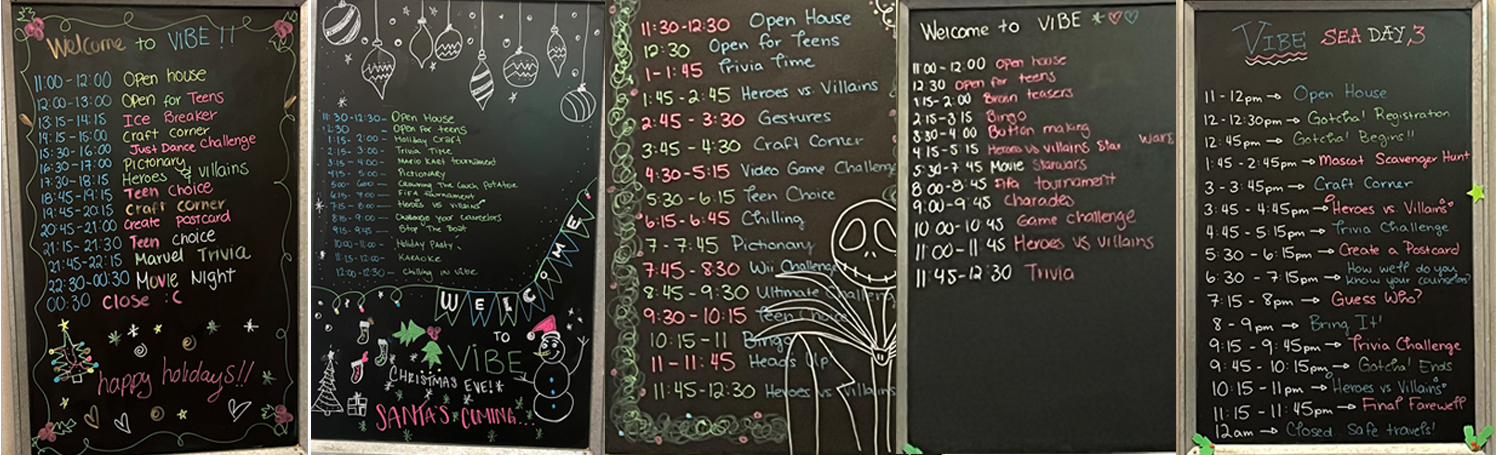 Welcome to VIBE !!
11:00 - 12:00 Open house
12:00 - 13:00 Open for Teens
13:15 - 14:15 Ice Breaker
14:15 - 15:00 Craft corner
15:30 - 16:00 Just Dance challenge
16:30 - 17:00 Pictionary
17:30 - 18:15 Heroes & villains
18:45 - 19:15 Teen choice
19:45 - 20:15 Craft corner
20:45 - 21:00 Create postcard
21:15 - 21:30 Teen choice
21:45 - 22:15 Marvel Trivia
22:30 - 00:30 Movie Night
00:30 Close :C
happy holidays!!
11:30 - 12:30 - Open House
12:30 - Open for teens
1:15 - 2:00 - Holiday Craft
2:15 - 3:00 - Trivia Time
3:15 - 4:00 - Mario Kart tournament
4:15 - 5:00 - Pictionary
5:00 - 6:00 - Crowning The Couch Potatoe
6:15 - 7:00 - FIFA tournament
7:15 - 8:00 - Heroes vs Villains
8:15 - 9:00 - Challenge your counselors
9:15 - 9:45 - Stop The Boat
10:00 - 11:00 - Holiday Party
11:15 - 12:00 - KARAOKE
12:00 - 12:30 - Chilling in vibe
WELCOME
TO
VIBE
CHRISTMAS EVE!
SANTA'S COMING...
11:30-12:30 Open House
12:30 Open for Teens
1-1:45 Trivia Time
1:45-2:45 Heroes vs. Villains
2:45-3:30 Gestures
3:45-4:30 Craft Corner
4:30-5:15 Video Game Challenge
5:30-6:15 Teen Choice
6:15-6:45 Chilling
7-7:45 Pictionary
7:45-8:30 Wii Challenge
8:45-9:30 Ultimate Challeng
9:30-10:15 Teen Choice
10:15-11 Bingo
11-11:45 Heads Up
11:45-12:30 Heroes vs Villains
Welcome to VIBE
11:00 - 12:00 Open house
12:30 Open for teens
1:15 - 2:00 Brain teasers
2:15 - 3:15 Bingo
3:30 - 4:00 Button making
4:15 - 5:15 Heroes vs villains Star wars
5:30 - 7:45 Movie Starwars
8:00 - 8:45 Fifa tournament
9:00 - 9:45 Charades
10:00 - 10:45 Game challenge
11:00 - 11:45 Heroes vs villains
11:45 - 12:30 Trivia
VIBE SEA DAY 3
11 - 12pm → Open House
12 - 12:30pm → Gotcha! Registration
12:45pm → Gotcha! Begins!!
1:45 - 2:45pm → Mascot Scavenger Hunt
3 - 3:45pm → Craft Corner
3:45 - 4:45pm → Heroes vs. Villains
4:45 - 5:15pm → Trivia Challenge
5:30 - 6:15pm → Create a Postcard
6:30 - 7:15pm → How well do you
know your counselors?
7:15 - 8pm → Guess Who?
8 - 9pm → Bring It!
9:15 - 9:45pm → Trivia Challenge
9:45 - 10:15pm → Gotcha! Ends
10:15 - 11pm → Heroes vs. Villains
11:15 - 11:45pm → Final Farewell
12am → Closed. Safe travels!